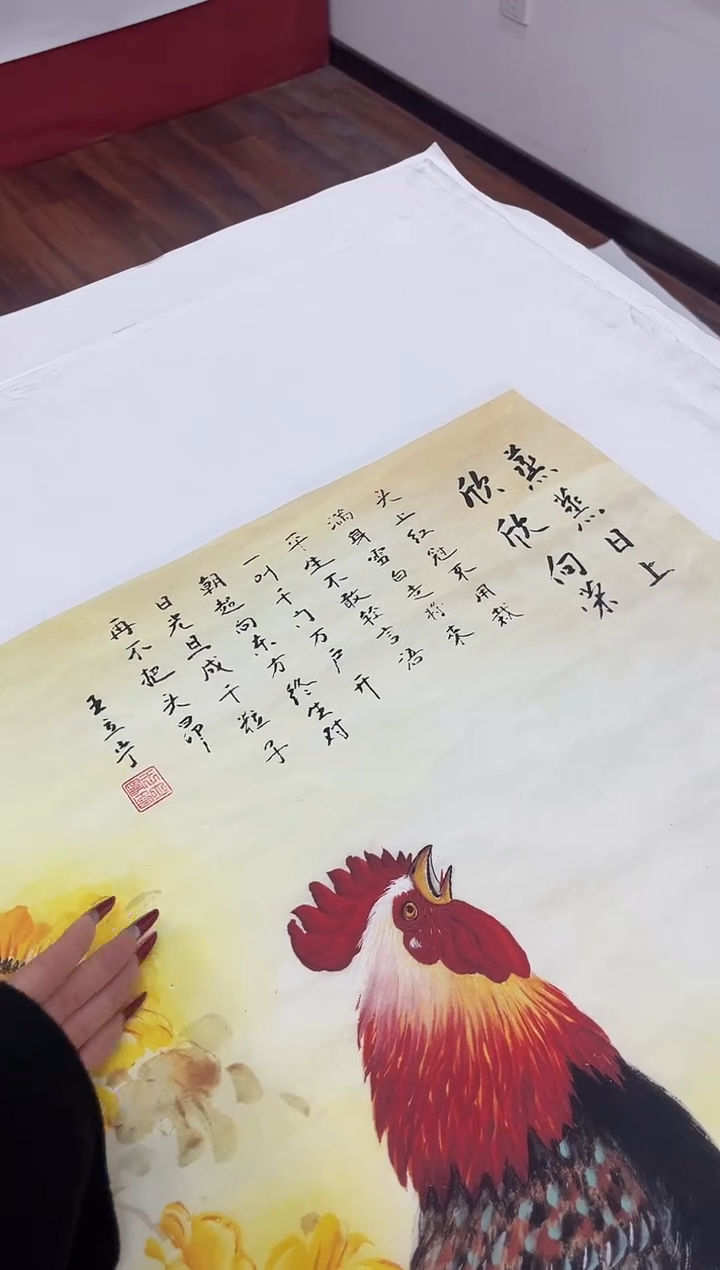 蒸蒸日上
欣欣向荣
头上红冠不用裁
满身雪白走将来
平生不敢轻言语
一叫千门万户开
朝超向东方终生对
日老旦成干粒子
再不把头昂
王立宁